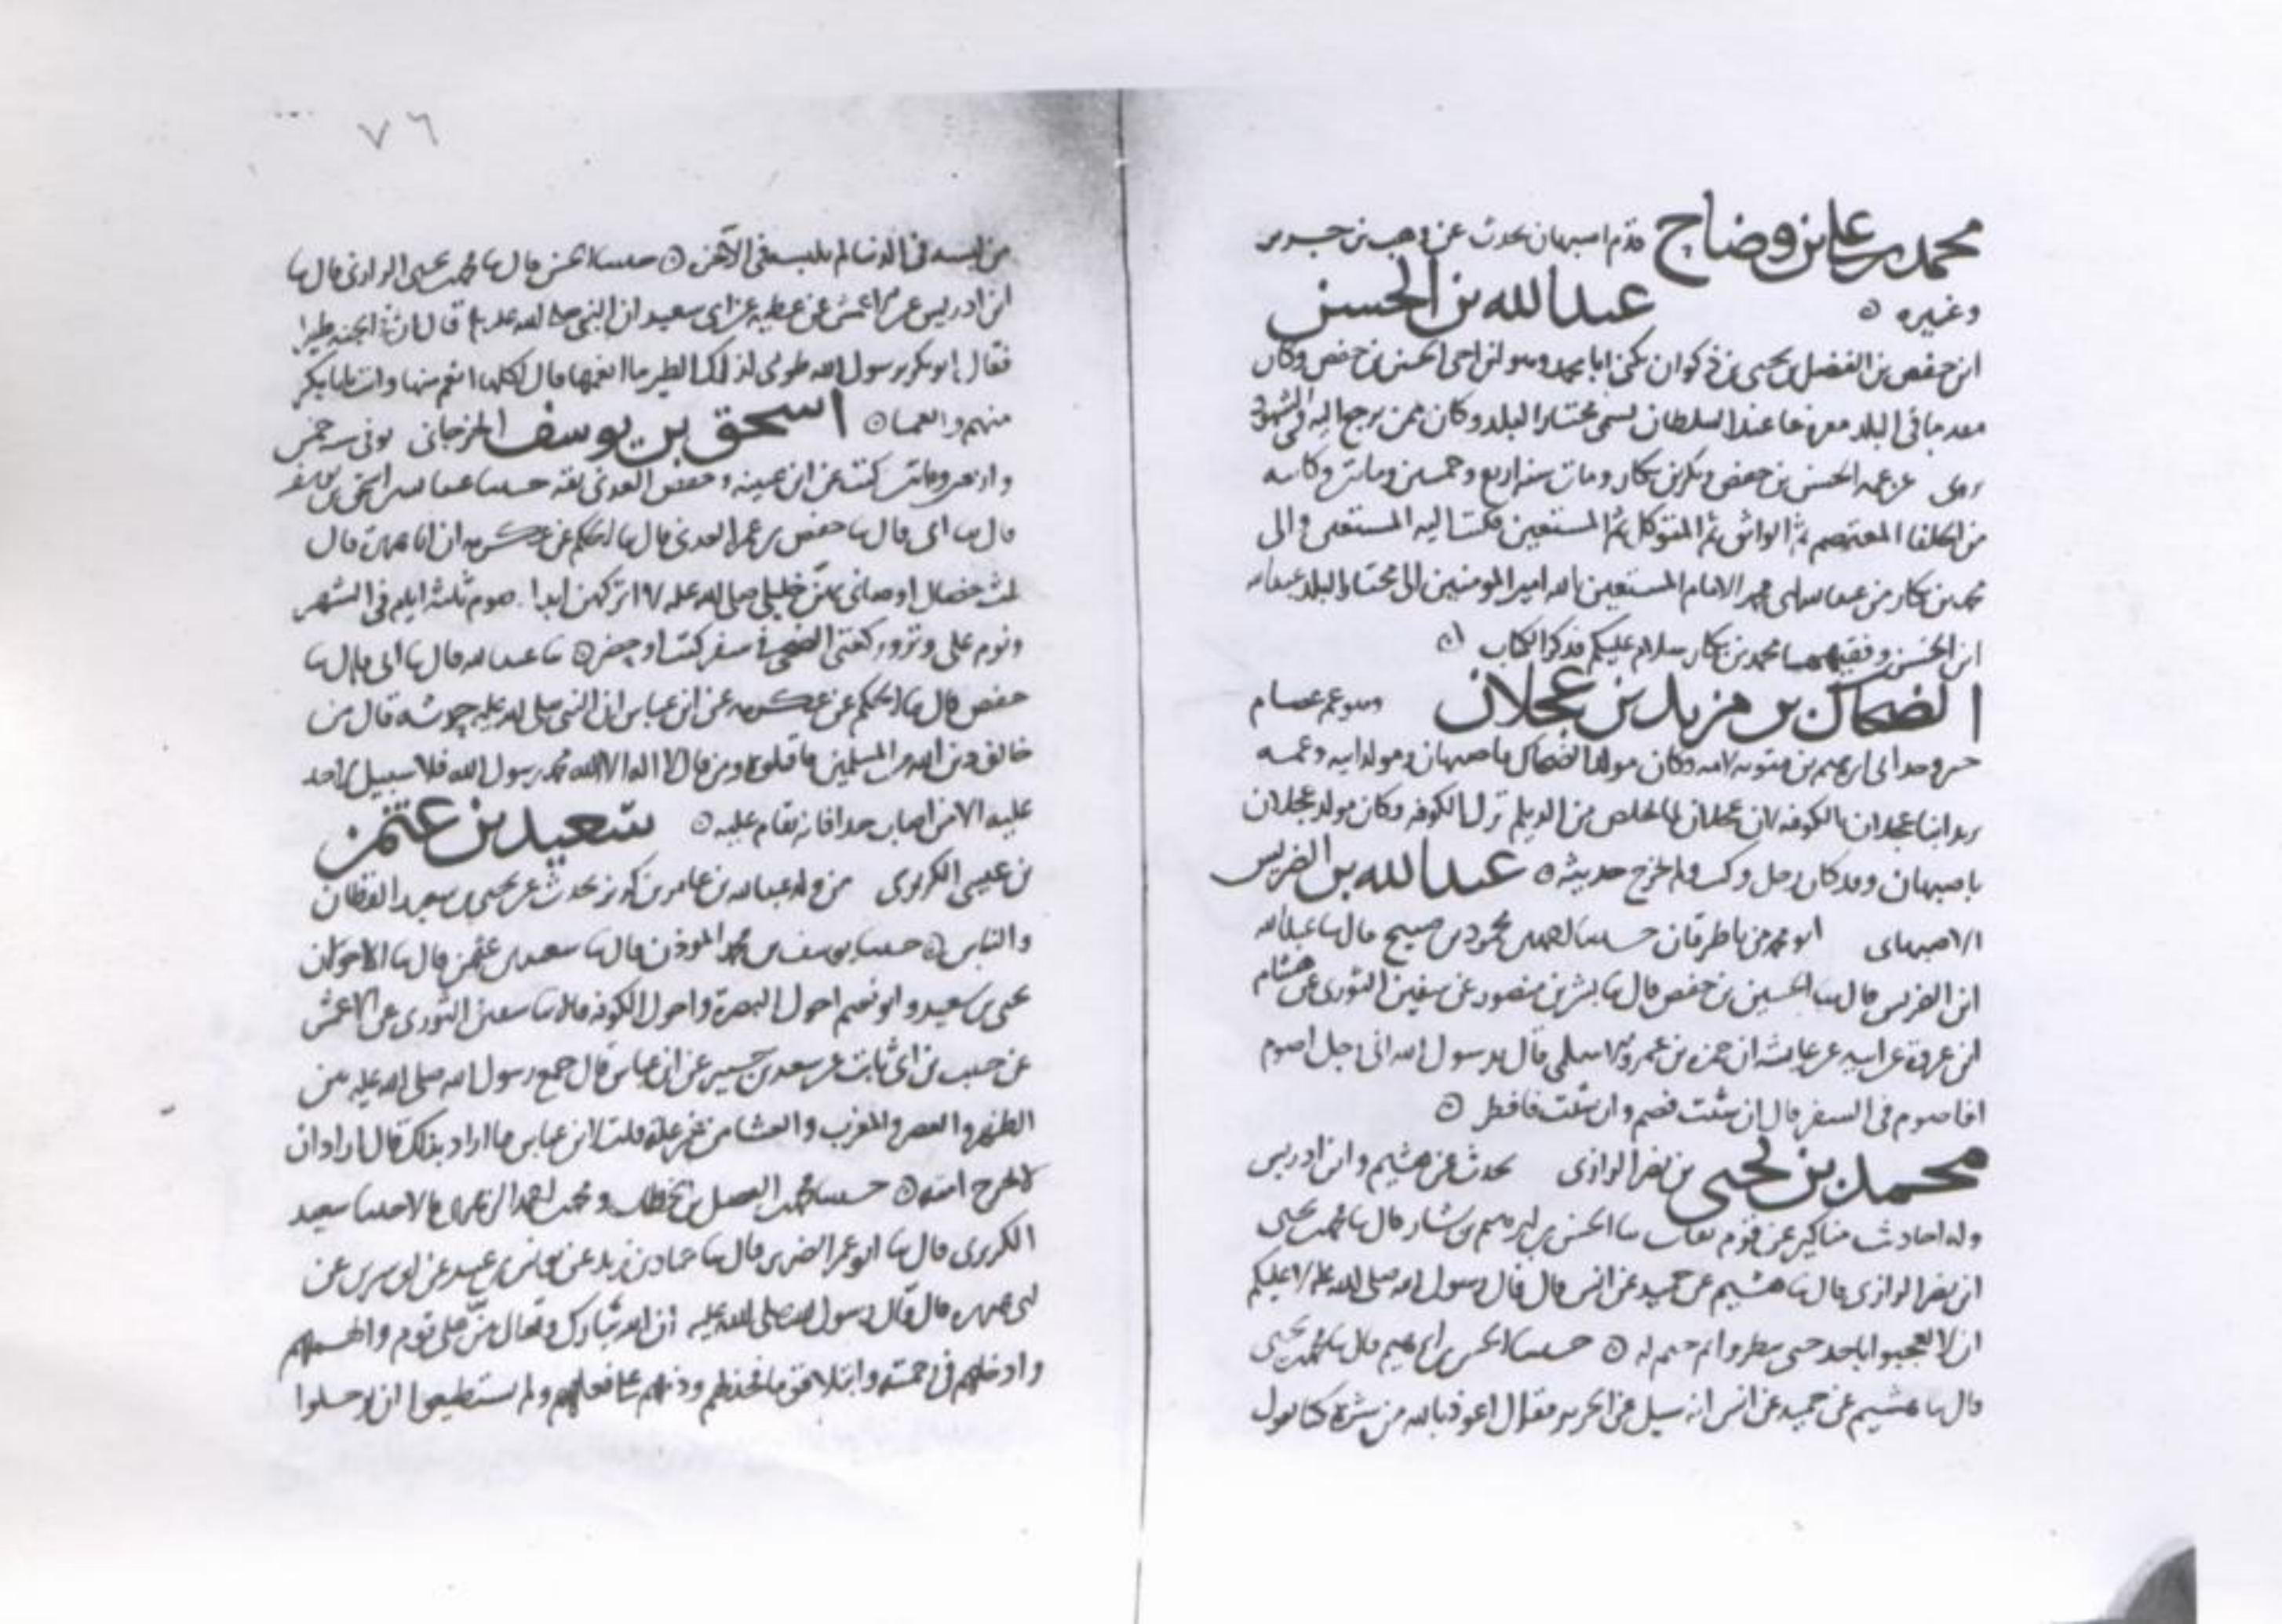 محمد بن علي بن وضاح قدم اصبهان يحدث عن وهب بن جرير
وغيره عبد الله بن الحسن
ابن حفص بن الفضل بن يحيى بن ذكوان يكنى ابا محمد وهو ابن اخي الحسين بن حفص وكان
مقدما في البلد معروفا عند السلطان يسمى مختار البلد وكان ممن يرجع اليه في الشهود
روى عن عمه الحسين بن حفص وبكر بن بكار ومات سنة اربع وخمسين ومايتين وكاتبه
من الخلفا المعتصم ثم الواثق ثم المتوكل ثم المستعين فكتب اليه المستعين والى
محمد بن بكار من عبد الله الامام المستعين بالله امير المومنين الى مختار البلد عبد الله
ابن الحسن وفقيهها محمد بن بكار سلام عليكم فذكر الكتاب
الضحاك بن مزيد بن عجلان وهو عم عصام
جبر وجد ابي ابرهيم بن متويه لامه وكان مولد الضحاك باصبهان ومولد ابيه وعمه
يزيد ابنا عجلان بالكوفه لان عجلان لما خلص من الديلم نزل الكوفه وكان مولد عجلان
باصبهان وقد كان رحل وكتب ولم يخرج حديثه عبد الله بن الضريس
الاصبهاني ابو محمد من باطرقان حدثنا محمود بن صبيح قال ثنا عبد الله
ابن الضريس قال ثنا الحسين بن حفص قال ثنا بشر بن منصور عن سفين الثوري عن هشام
ابن عروة عن ابيه عن عايشه ان حمزه بن عمرو الاسلمي قال يرسول الله اني رجل اصوم
افاصوم في السفر قال ان شئت فصم وان شئت فافطر
محمد بن يحيى بن نصر الرازي يحدث عن هشيم وابن ادريس
وله احاديث مناكير عن قوم ثقات ثنا الحسن بن ابرهيم بن بشار قال ثنا محمد بن يحيى
ابن نصر الرازي قال ثنا هشيم عن حميد عن انس قال قال رسول الله صلى الله عليه لا عليكم
ان لا تعجبوا باحد حتى تنظروا بم يختم له حدثنا الحسن بن ابرهيم قال ثنا محمد بن يحيى
قال ثنا هشيم عن حميد عن انس انه سيل عن الحرير فقال اعوذ بالله من شره كنا نقول
٧٦
من لبسه في الدنيا لم يلبسه في الآخرة حدثنا الحسن قال ثنا محمد بن يحيى الرازي قال ثنا
ابن ادريس عن الاعمش عن عطيه عن ابي سعيد ان النبي صلى الله عليه قال ان في الجنه طيرا
فقال ابو بكر يرسول الله طوبى لذلك الطير ما انعمها قال اكلها انعم منها وانت يا ابا بكر
منهم اسحق بن يوسف الجرجاني توفي سنه خمس
واربعين ومايتين كتب عن ابن عيينه وحفص العدني ثقه حدثنا عبد الله بن اسحق بن يوسف
قال ثنا ابي قال ثنا حفص بن عمر العدني قال ثنا الحكم عن عكرمه ان ابا هريرة قال
ثلث خصال اوصاني بهن خليلي صلى الله عليه لا اتركهن ابدا صوم ثلثة ايام في الشهر
ونوم على وتر وركعتي الضحى في سفر كنت او حضر ثنا عبد الله قال ثنا ابي قال ثنا
حفص قال ثنا الحكم عن عكرمه عن ابن عباس ان النبي صلى الله عليه قال من
خالف دين الله من المسلمين فاقتلوه ومن قال لا اله الا الله محمد رسول الله فلا سبيل لاحد
عليه الا من اصاب حدا فانه يقام عليه سعيد بن عثمن
بن عيسى الكريزي من ولد عبد الله بن عامر بن كريز يحدث عن يحيى بن سعيد القطان
والناس حدثنا يوسف بن محمد الموذن قال ثنا سعيد بن عثمن قال ثنا الاحولان
يحيى بن سعيد وابو نعيم احول البصرة واحول الكوفه قالا ثنا سفين الثوري عن الاعمش
عن حبيب بن ابي ثابت عن سعيد بن جبير عن ابن عباس قال جمع رسول الله صلى الله عليه بين
الظهر والعصر والمغرب والعشا من غير علة قلت لابن عباس ما اراد بذلك قال اراد ان
لا يحرج امته حدثنا محمد بن الفضل بن الخطاب ومحمد بن احمد الزهري قالا حدثنا سعيد
الكريزي قال ثنا ابو عمر الضرير قال ثنا حماد بن زيد عن يونس بن عبيد عن ابن سيرين عن
ابي هريره قال قال رسول الله صلى الله عليه ان الله تبارك وتعالى من على قوم والهمهم
وادخلهم في رحمته وابتلا قوما فخذلهم وذمهم على افعالهم ولم يستطيعوا ان يرحلوا